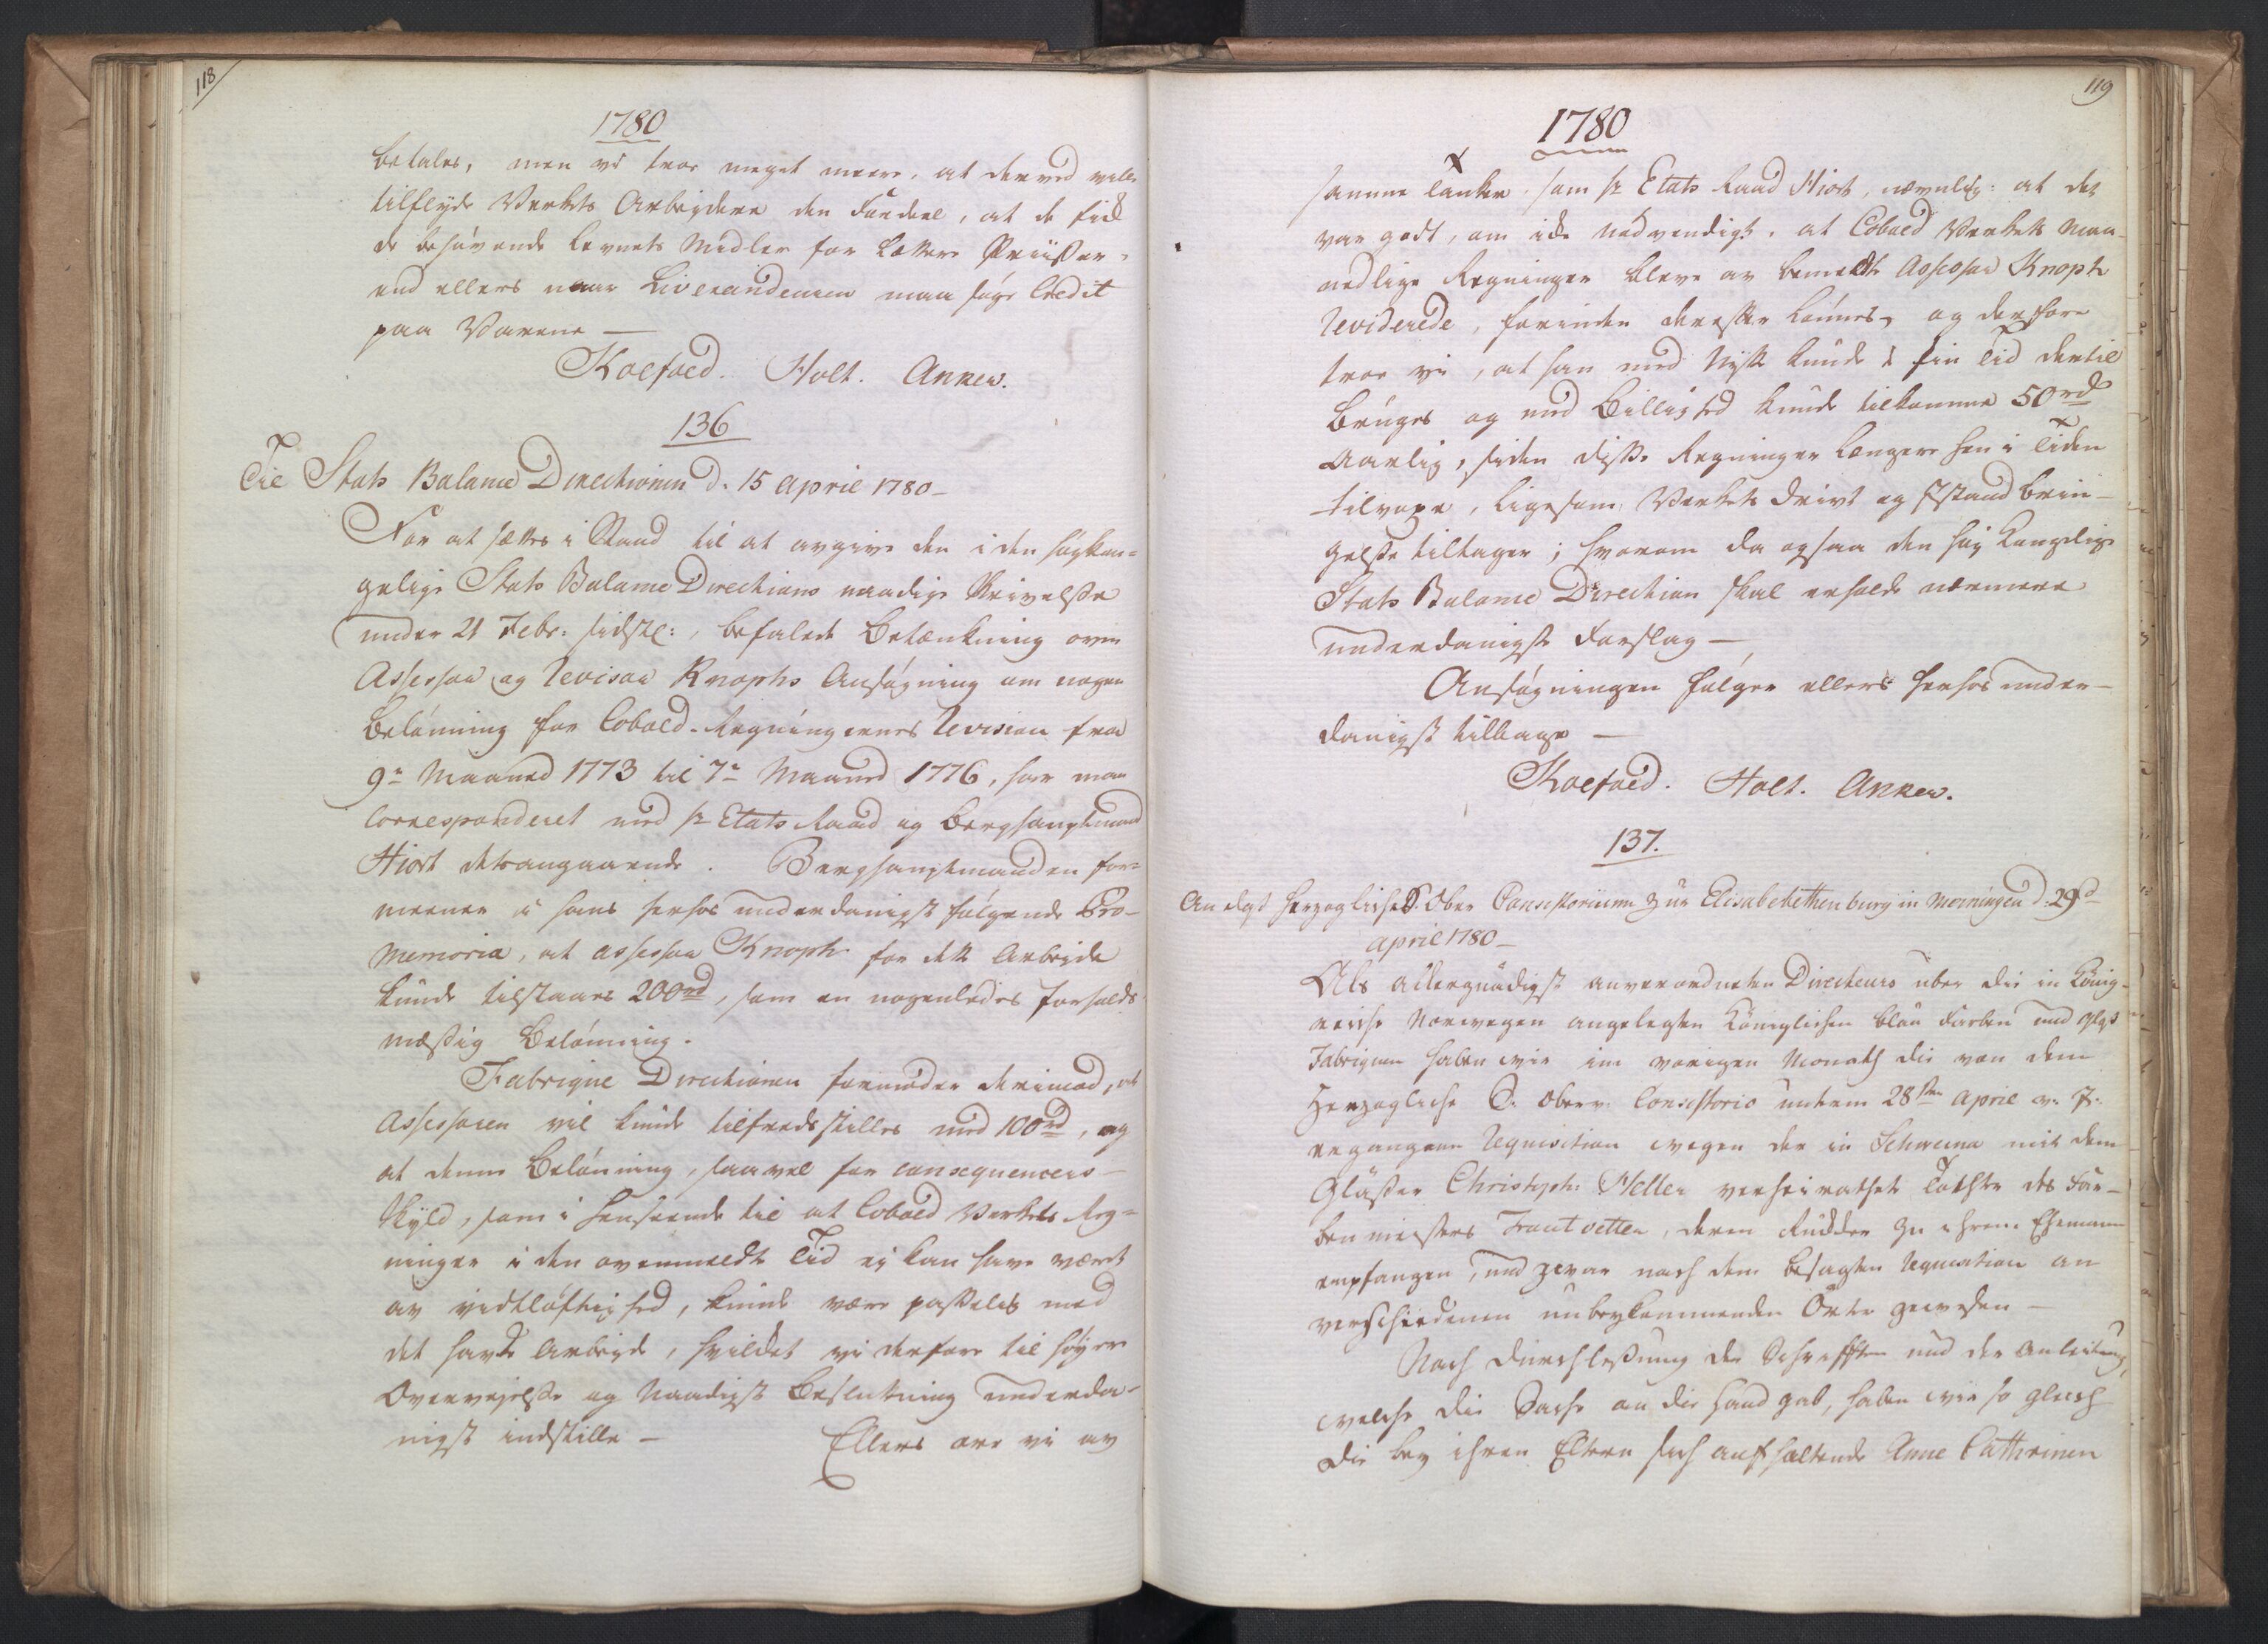 118
1780
betales, men vi troe meget meere, at derved ville
tilflyde Verkets Arbeydere den Fordeel, at de fik
de behövende Levnets Midler for lettere Priiser
end ellers naar Liverandeuren maa söge Credit
paa Varene —
Koefoed. Holt. Anker.
136
Til Stats Balance Directionen d. 15 April 1780 –
For at settes i Stand til at avgive den i den höykon=
gelige Stats Balance Directions naadige Skrivelse
under 21 Febr: sidstl:, befalede Betænkning over
Assessor og Revisor Knophs Ansögning om nogen
Belönning for Cobold-Regningernes Revision fra
9de Maaned 1773 til 7de Maaned 1776, har man
Corresponderet med Hr Etats Raad og Berghauptmand
Hiort detangaaende. Berghauptmanden for=
meener i hans herhos underdanigst fölgende Pro-
memoria, at Assessor Knoph for dette Arbeyde
kunde tilstaaes 200rd, som en nogenledes forholds
mæssig Belönning.
Fabrique Directionen formoder derimod, at
Assessoren vil kunde tilfredsstilles med 100rd, og
at denne Belönning, saavel for consequencens
Skyld, som i Henseende til at Cobold Verkets Reg=
ninger i den ovenmeldte Tid ej kan have været
av vidtlöftighed, kunde være passelig med
det havde Arbeyde, hvilket vi derfore til höyere
Overvejelse og Naadigst Beslutning underda-
nigst indstille – Ellers ere vi av
119
1780
samme Tanker som Hr Etats Raad Hiort, nævnlig: at det
var godt, om ikke nödvendigt, at Cobold Verkets Maa-
nedlige Regninger bleve av bemeldte Assessor Knoph
Reviderede, forinden derefter lönnes, og derfore
troe vi, at han med Nytte kunde i sin Tid dertil
bruges og med Billighed kunde tilkomme 50rd
Aarlig, siden disse Regninger længere hen i Tiden
tilvoxe, ligesom Verkets Drivt og Istandbrin-
gelse tiltager; hvorom da ogsaa den höy Kongelige
Stats Balance Direction skal erholde nærmere
underdanigste Forslag —
Ansögningen fölger ellers herhos under-
danigst tilbage —
Koefoed. Holt. Anker.
137.
An elgt Herzogliches S. Ober Consistorium zur Elisabethenburg in Meiningen d. 29d
April 1780 –
Als allergnädigst anverordneten Directeurs über die in König-
reiche Norwegen angelegten Königlichen blau Farben und Glas
Fabriquen haben wir im vorigen Monath die von dem
Herzogliche S. Ober Consistorio unterm 28sten April v. J.
ergangene Requisition wegen der in Schweina mit dem
Gläser Christoph: Heller verheirathet Tochter des Far-
benmeisters Trautvetter, deren Kinder zu ihrem Ehemann
empfangen, und zwar nach dem besagten Requisition an
verschiedenen unbeykommenden Orte gewesen —
Nach Durchlesung der Schrifften und der Anleitung,
welche die Sache an die Hand gab, haben wir so gleich
die bey ihren Eltern sich aufhaltende Anne Cathrinen